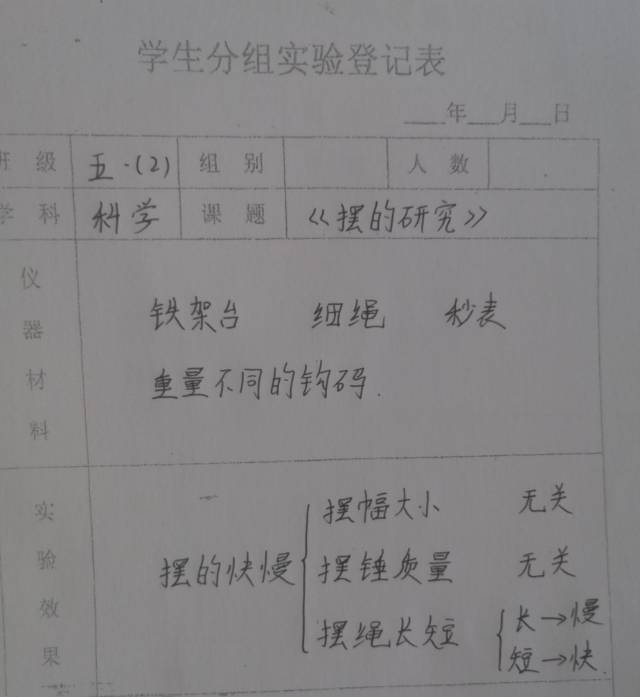 学生分组实验登记表
年 月 日
班 级 五·(2) 组 别 人 数
学 科 科学 课 题 《摆的研究》
仪器材料
铁架台 细绳 秒表
重量不同的钩码.
实验效果
摆幅大小 无关
摆的快慢 摆锤质量 无关
摆绳长短 长→慢
短→快